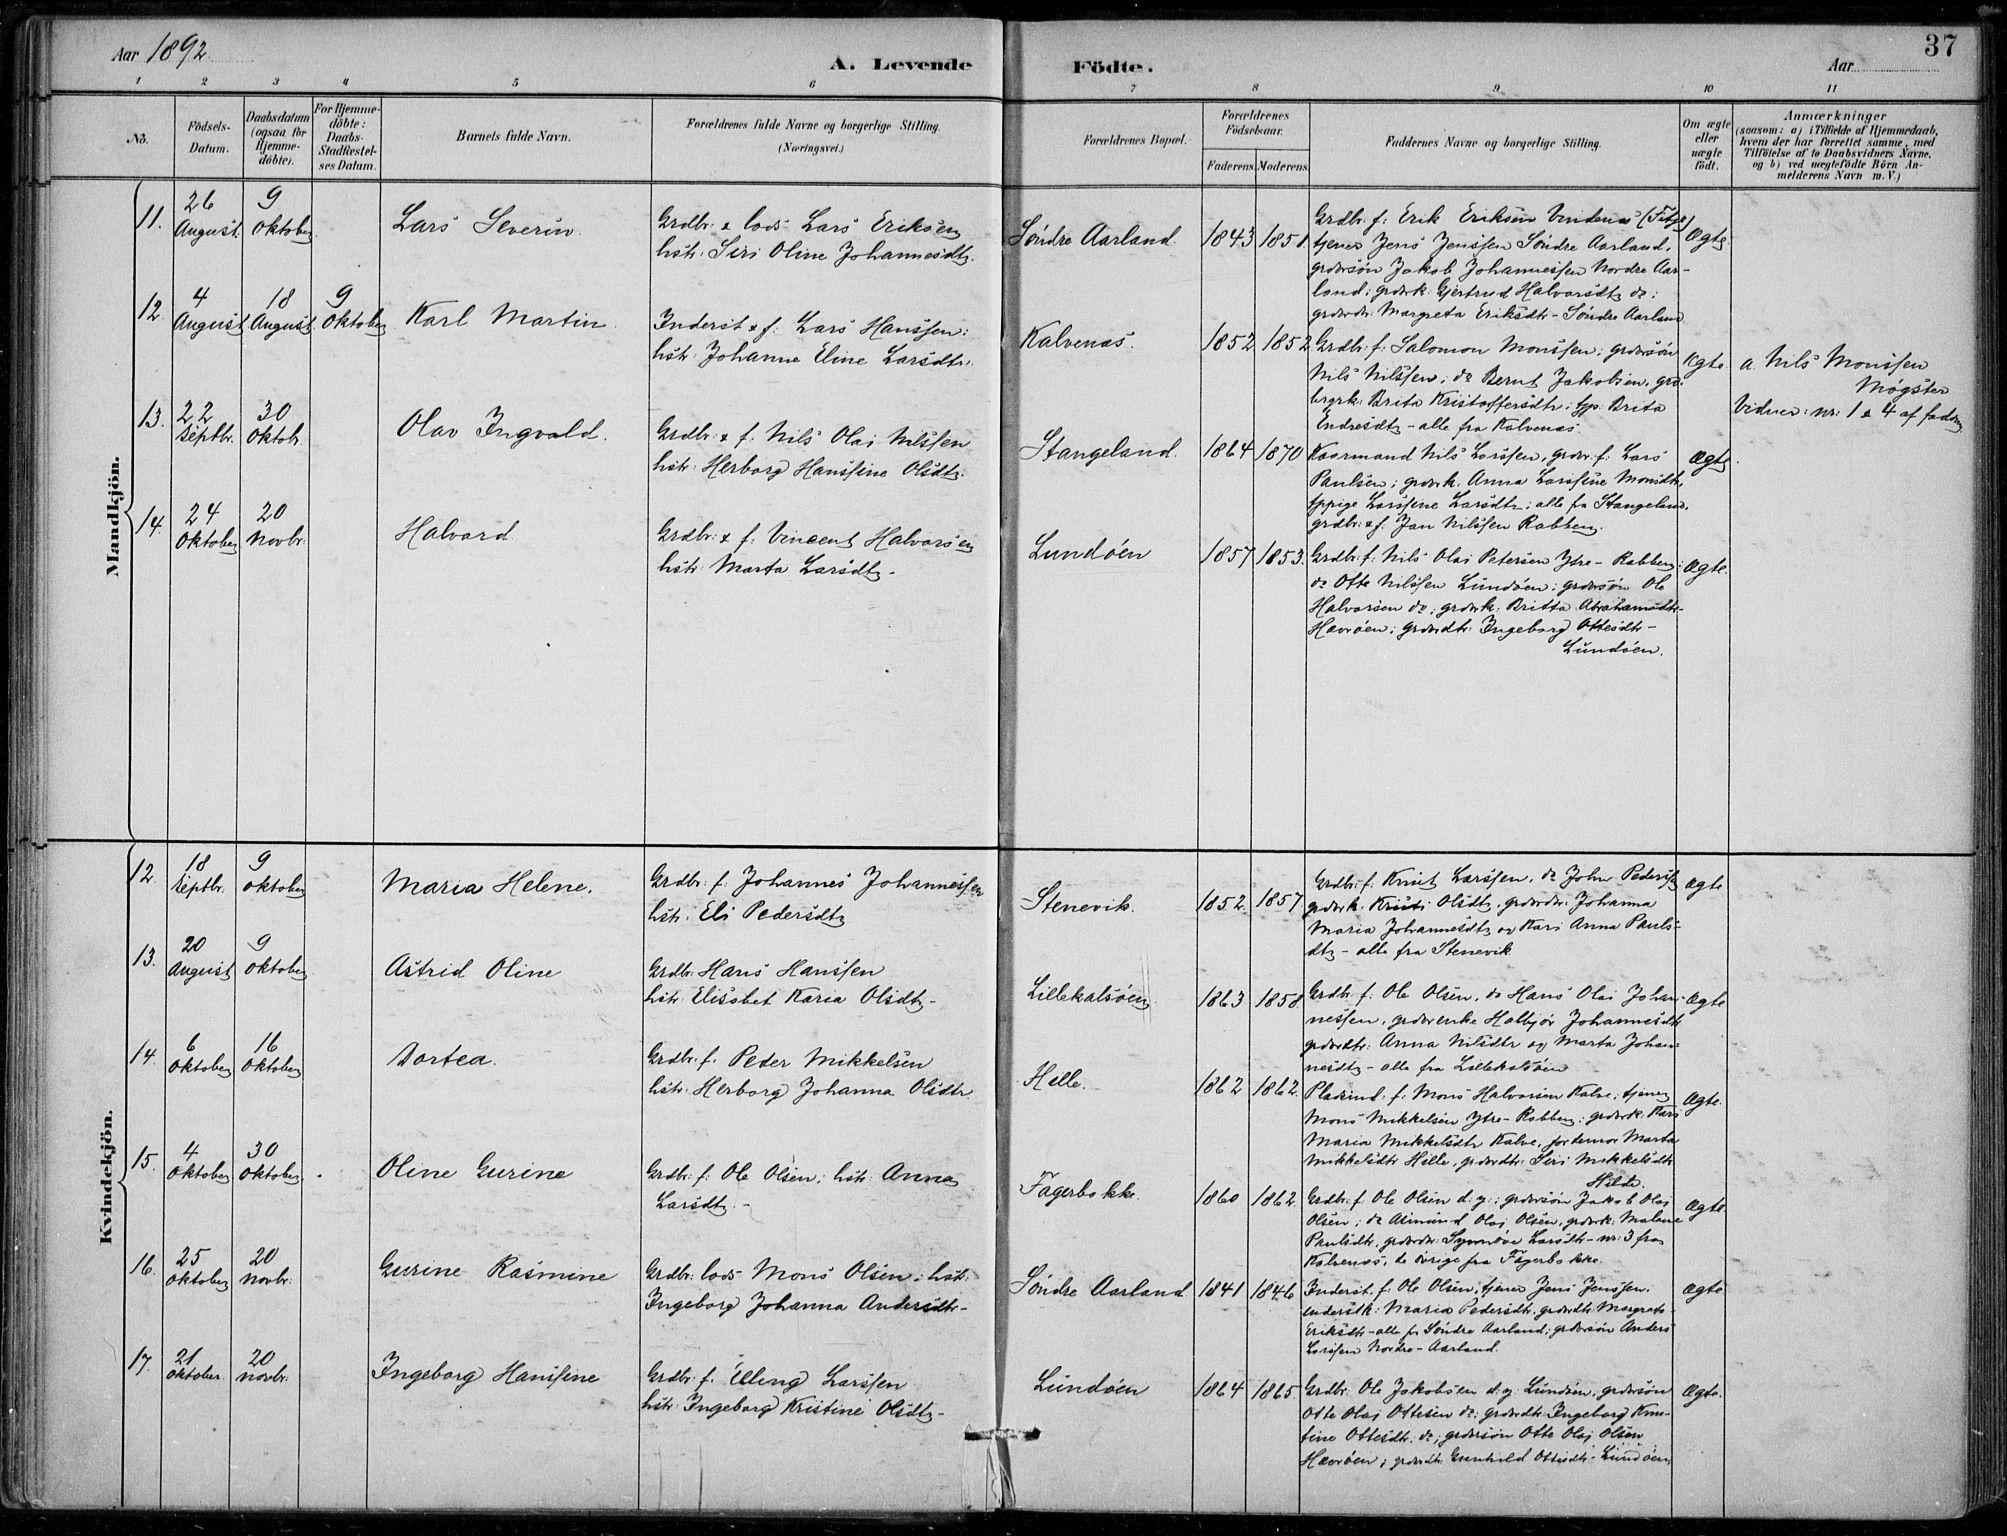 Aar 1892
A. Levende
Födte.
Aar
37
1 2 3 4 5 6 7 8 9 10 11
No.
Födsels-
Datum.
Daabsdatum
(ogsaa for
Hjemme-
döbte).
For Hjemme-
döbte:
Daabs-
Stadfæstel-
ses Datum.
Barnets fulde Navn.
Forældrenes fulde Navne og borgerlige Stilling.
(Næringsvei.)
Forældrenes Bopæl.
Forældrenes
Födselsaar.
Faderens.
Moderens.
Faddernes Navne og borgerlige Stilling.
Om ægte
eller
uægte
födt.
Anmærkninger
(saasom: a) i Tilfælde af Hjemmedaab,
hvem der har forrettet samme, med
Tilföielse af to Daabsvidners Navne,
og b) ved uægtefödte Börn An-
melderens Navn m. V.)
Mandkjön.
11.
26
August.
9
Oktober
Lars Severin.
Grdbr: & lods Lars Eriksen
hstr: Siri Oline Johannesdtr.
Söndre Aarland.
1843
1851.
Grdbr: f: Erik Eriksen Vindenes (Fitje)
tjener Jens Jenssen Söndre Aarland,
grdbrsön Jakob Johannessen Nordre Aar-
land; grdbrk: Gjertrud Halvorsdtr do;
grdbrdtr: Margreta Eriksdtr - Söndre Aarland
Ægte
12.
4
August
18
August
9
Oktober
Karl Martin
Inderst & f: Lars Hanssen;
hstr: Johanne Eline Larsdtr.
Kalvenes.
1852
1852
Grdbr: f: Salomon Monssen; grdbrsön
Nils Nilssen; do Bernt Jakobsen, grd-
brgrk: Brita Kristoffersdtr; tjp: Brita
Endresdtr - alle fra Kalvenes.
Ægte
a. Nils Monssen
Møgster
Vidner: nr: 1 & 4 af fadd
13.
22
Septbr.
30
Oktobr.
Olav Ingvald.
Grdbr: & f. Nils Olai Nilssen
hstr: Herborg Hanssine Olsdtr.
Stangeland.
1864
1870
Kaarmand Nils Larssen, grdbr. f: Lars
Paulsen; grdbrk. Anna Larssine Monsdtr,
tjpige Larssine Larsdtr; alle fra Stangeland.
grdbr: & f. Jan Nilssen Rabben.
Ægte
14.
24
Oktober
20
Novbr:
Halvard
Grdbr: & f: Vincent Halvorsen
hstr: Marta Larsdtr.
Lundöen
1857
1853.
Grdbr: f: Nils Olai Petersen Ytre-Rabben;
do Otte Nilssen Lundöen; grdbrsön Ole
Halvorsen do; grdbrk: Britta Abrahamsdtr
Hevröen; grdbrdtr: Ingeborg Ottesdtr -
Lundöen.
Ægte.
Kvindekjön.
12.
18
Septbr.
9
Oktober
Maria Helene.
Grdbr: f: Johannes Johannessen
hstr: Eli Pedersdtr
Stenevik.
1852.
1857
Grdbr: f: Knut Larssen, do John Pedersen
grdbrk. Kristi Olsdtr, grdbrdtr: Johanna
Maria Johannesdtr og Kari Anna Pauls-
dtr - alle fra Stenevik
Ægte
13.
20
August
9
Oktober
Astrid Oline
Grdbr: Hans Hanssen
hstr: Elisabet Karia Olsdtr -
Lillekalsöen.
1863
1858.
Grdbr: f: Ole Olsen, do Hans Olai Johan-
nessen, grdbrenke Halbjör Johannesdtr
grdbrdtr: Anna Nilsdtr og Marta Johan-
nesdtr - alle fra Lillekalsöen
Ægte
14.
6
Oktober
16
Oktober
Dortea.
Grdbr: f. Peder Mikkelsen
hstr: Herborg Johanna Olsdtr.
Hille.
1862
1862.
Pladsind: f: Mons Halvorsen Kalve, tjener
Mons Mikkelsen Ytre-Rabben; grdbrk: Kari
Maria Mikkelsdtr Kalve, jordemor Marta
Mikkelsdtr Hille, grdbrdtr: Siri Mikkelsdtr
Hilde.
Ægte.
15.
4
Oktober
30
Oktober
Oline Gurine
Grdbr: f: Ole Olsen; hstr: Anna
Larsdtr -
Fagerbakke.
1860
1862.
Grdbr: f: Ole Olsen d: y:; grdbrsön Jakob Olai
Olsen; do Asmund Olai Olsen, grdbrk: Malene
Paulsdtr, grdbrdtr: Synnöve Larsdtr - nr: 3 fra
Kalvenes, de övrige fra Fagerbakke.
Ægte
16.
25
Oktober
20
Novbr:
Gurine Rasmine
Grdbr: lods Mons Olsen; hstr:
Ingeborg Johanna Andersdtr -
Söndre Aarland
1841
1846
Inderst. f: Ole Olsen, tjener Jens Jenssen,
inderstk: Maria Pedersdtr, grdbrdtr: Margrete
Eriksdtr - alle fr Söndre Aarland; grdbrsön Anders
Larssen Nordre-Aarland.
Ægte
17.
21
Oktober.
20
Novbr:
Ingeborg Hanssine
Grdbr: f. Elling Larssen
hstr: Ingeborg Kristine Olsdtr -
Lundöen
1864
1865
Grdbr: Ole Jakobsen d. y. Lundöen, grdbrsön
Otte Olai Ottesen do; grdbrdtr: Ingeborg Knu-
tine Ottesdtr. do; grdbrsön Otte Olai Olsen
Hevröen; grdbrdtr: Gunhild Ottesdtr - Lundöen
Ægte.